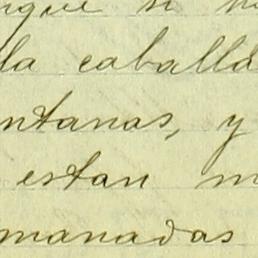 ngue si n
la caballa
ntanas, y
estan m
manadas